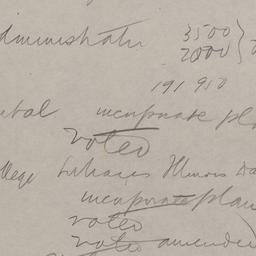 administrator 3500
2000
191 950
incorporate pla
voted
llege Libraries Illinois Da
incorporate plan
voted
voted amended